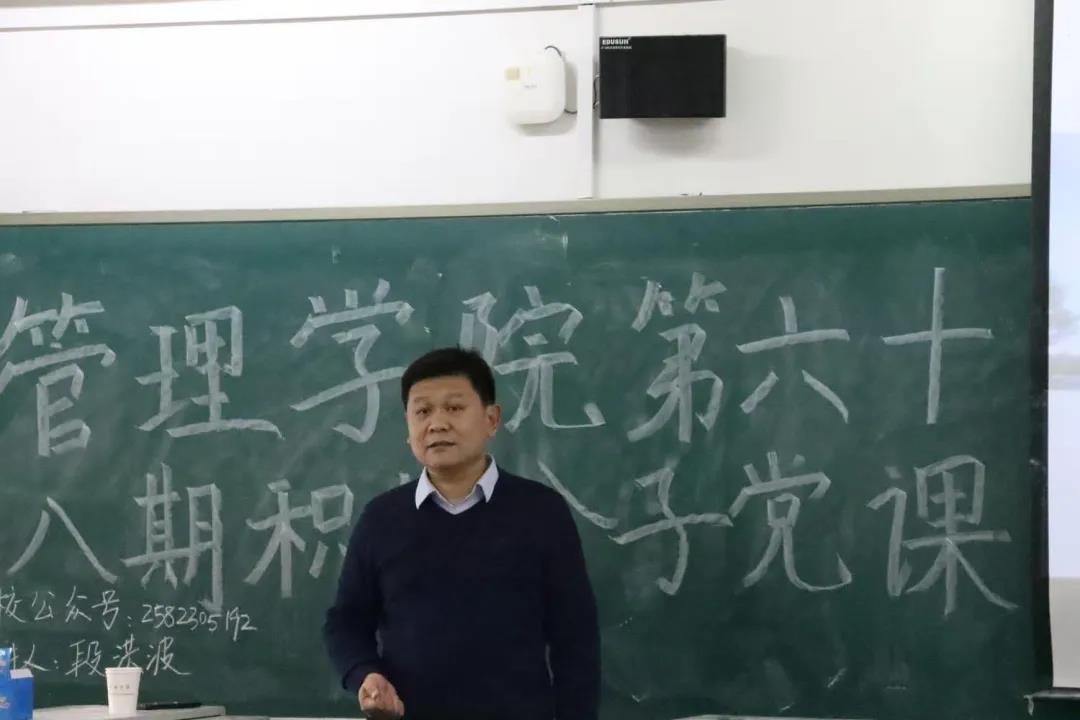 EDUSUN
管理学院第六十
八期积 子党课
校公众号:2582305192
讲人:段洪波